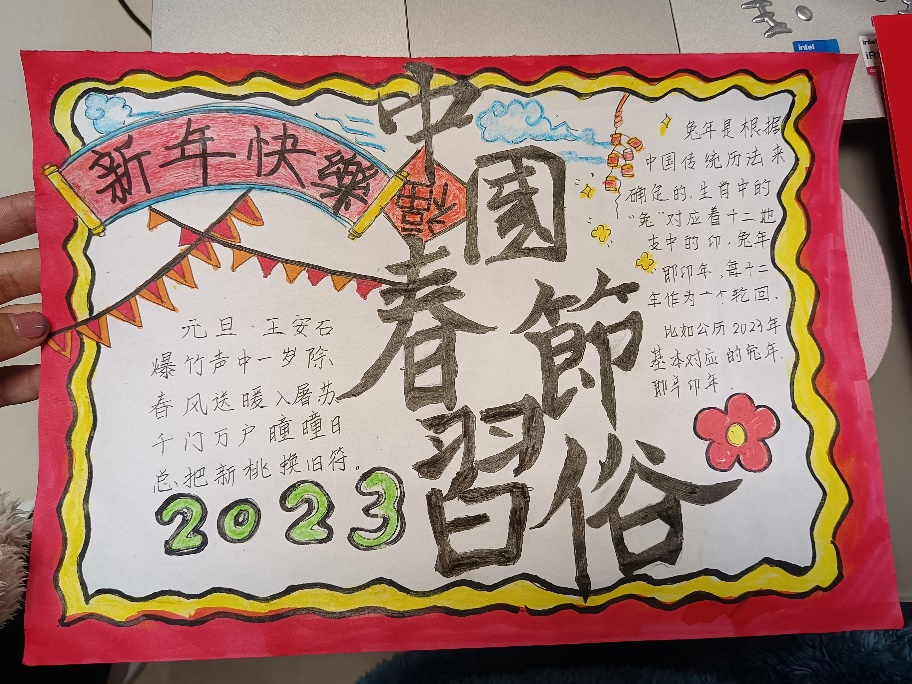 新年快樂
福
中國
春節
習俗
元旦·王安石
爆竹声中一岁除、
春风送暖入屠苏、
千门万户瞳瞳日
总把新桃换旧符。
2023
兔年是根据
中国传统历法来
确定的,生肖中的
"兔"对应着十二地
支中的卯,兔年
即卯年,每十二
年作为一个轮回、
比如公历2023年
基本对应的兔年
卯年.
intel
intel